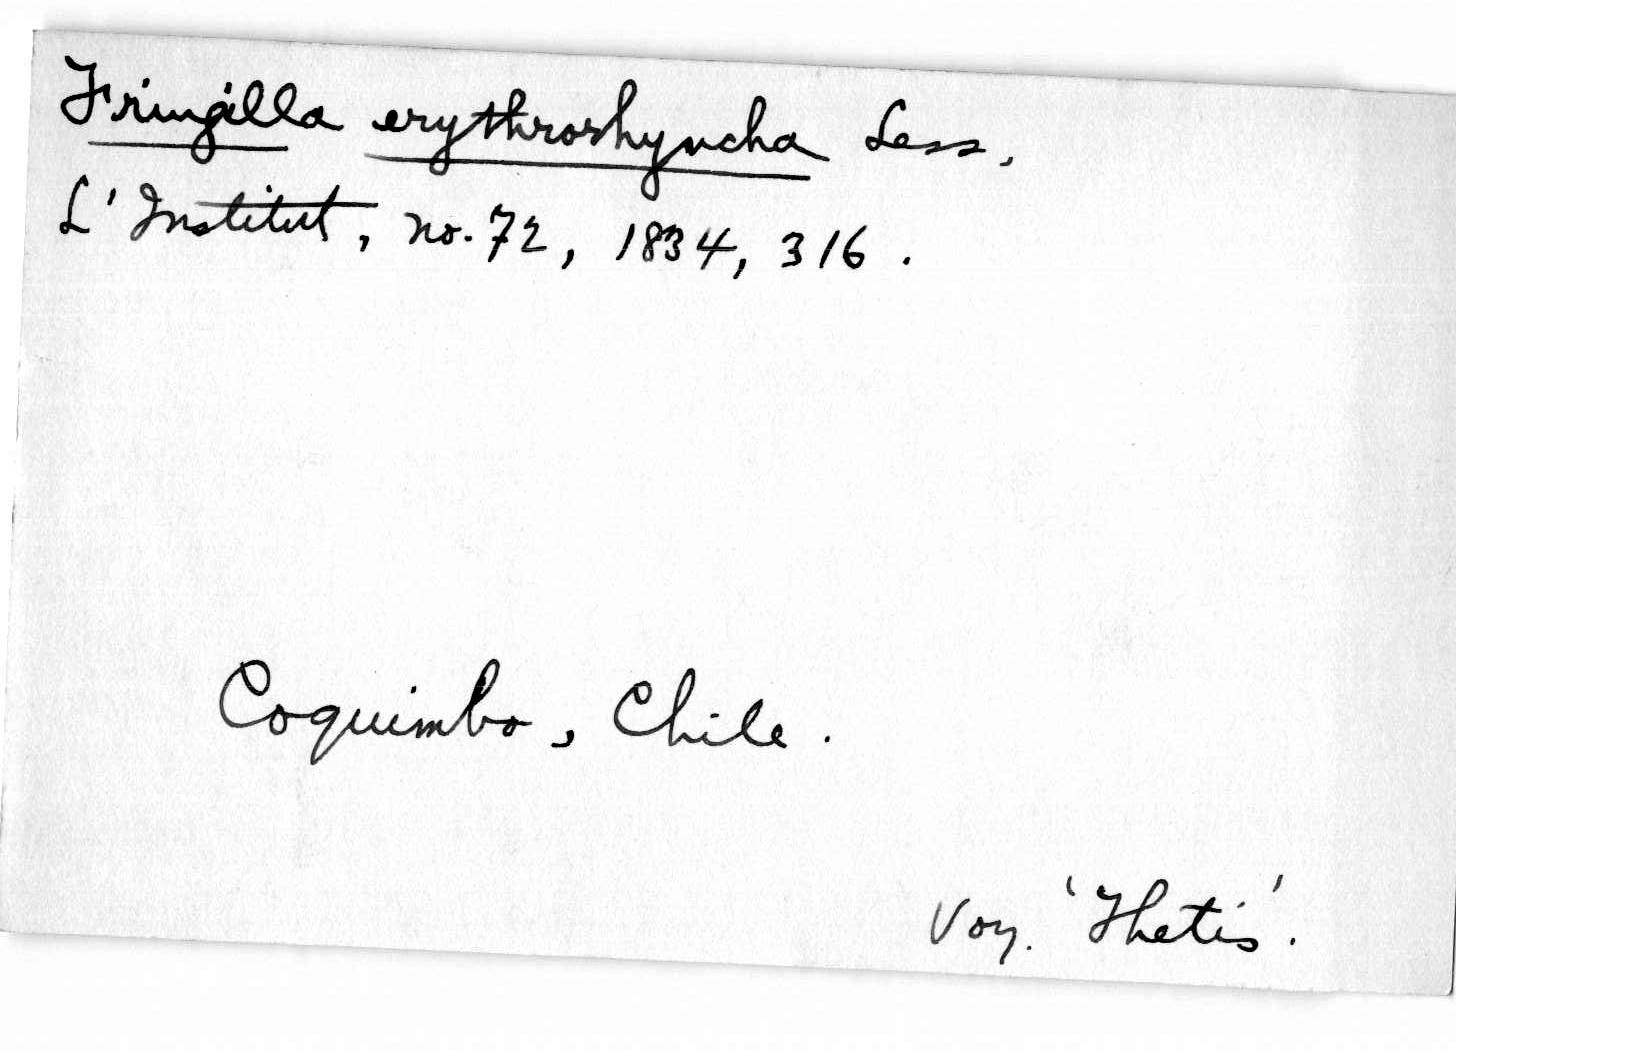 Fringilla erythrorhyncha Less.
L'Institut, no. 72, 1834, 316.
Coquimbo, Chile.
Voy. 'Thetis'.